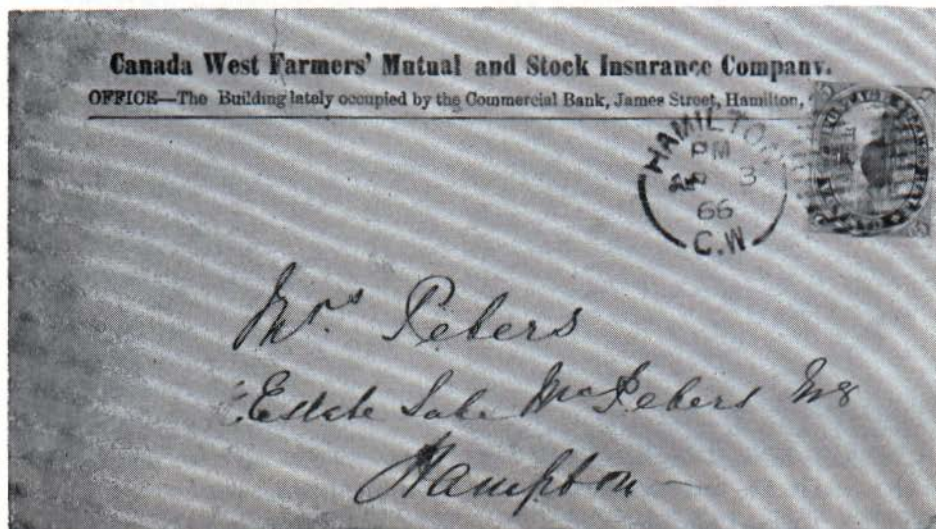 Canada West Farmers' Mutual and Stock Insurance Company.
OFFICE—The Building lately occupied by the Commercial Bank, James Street, Hamilton,
HAMILTON
PM
3
66
C.W
Mrs Peters
Estate
Hampton